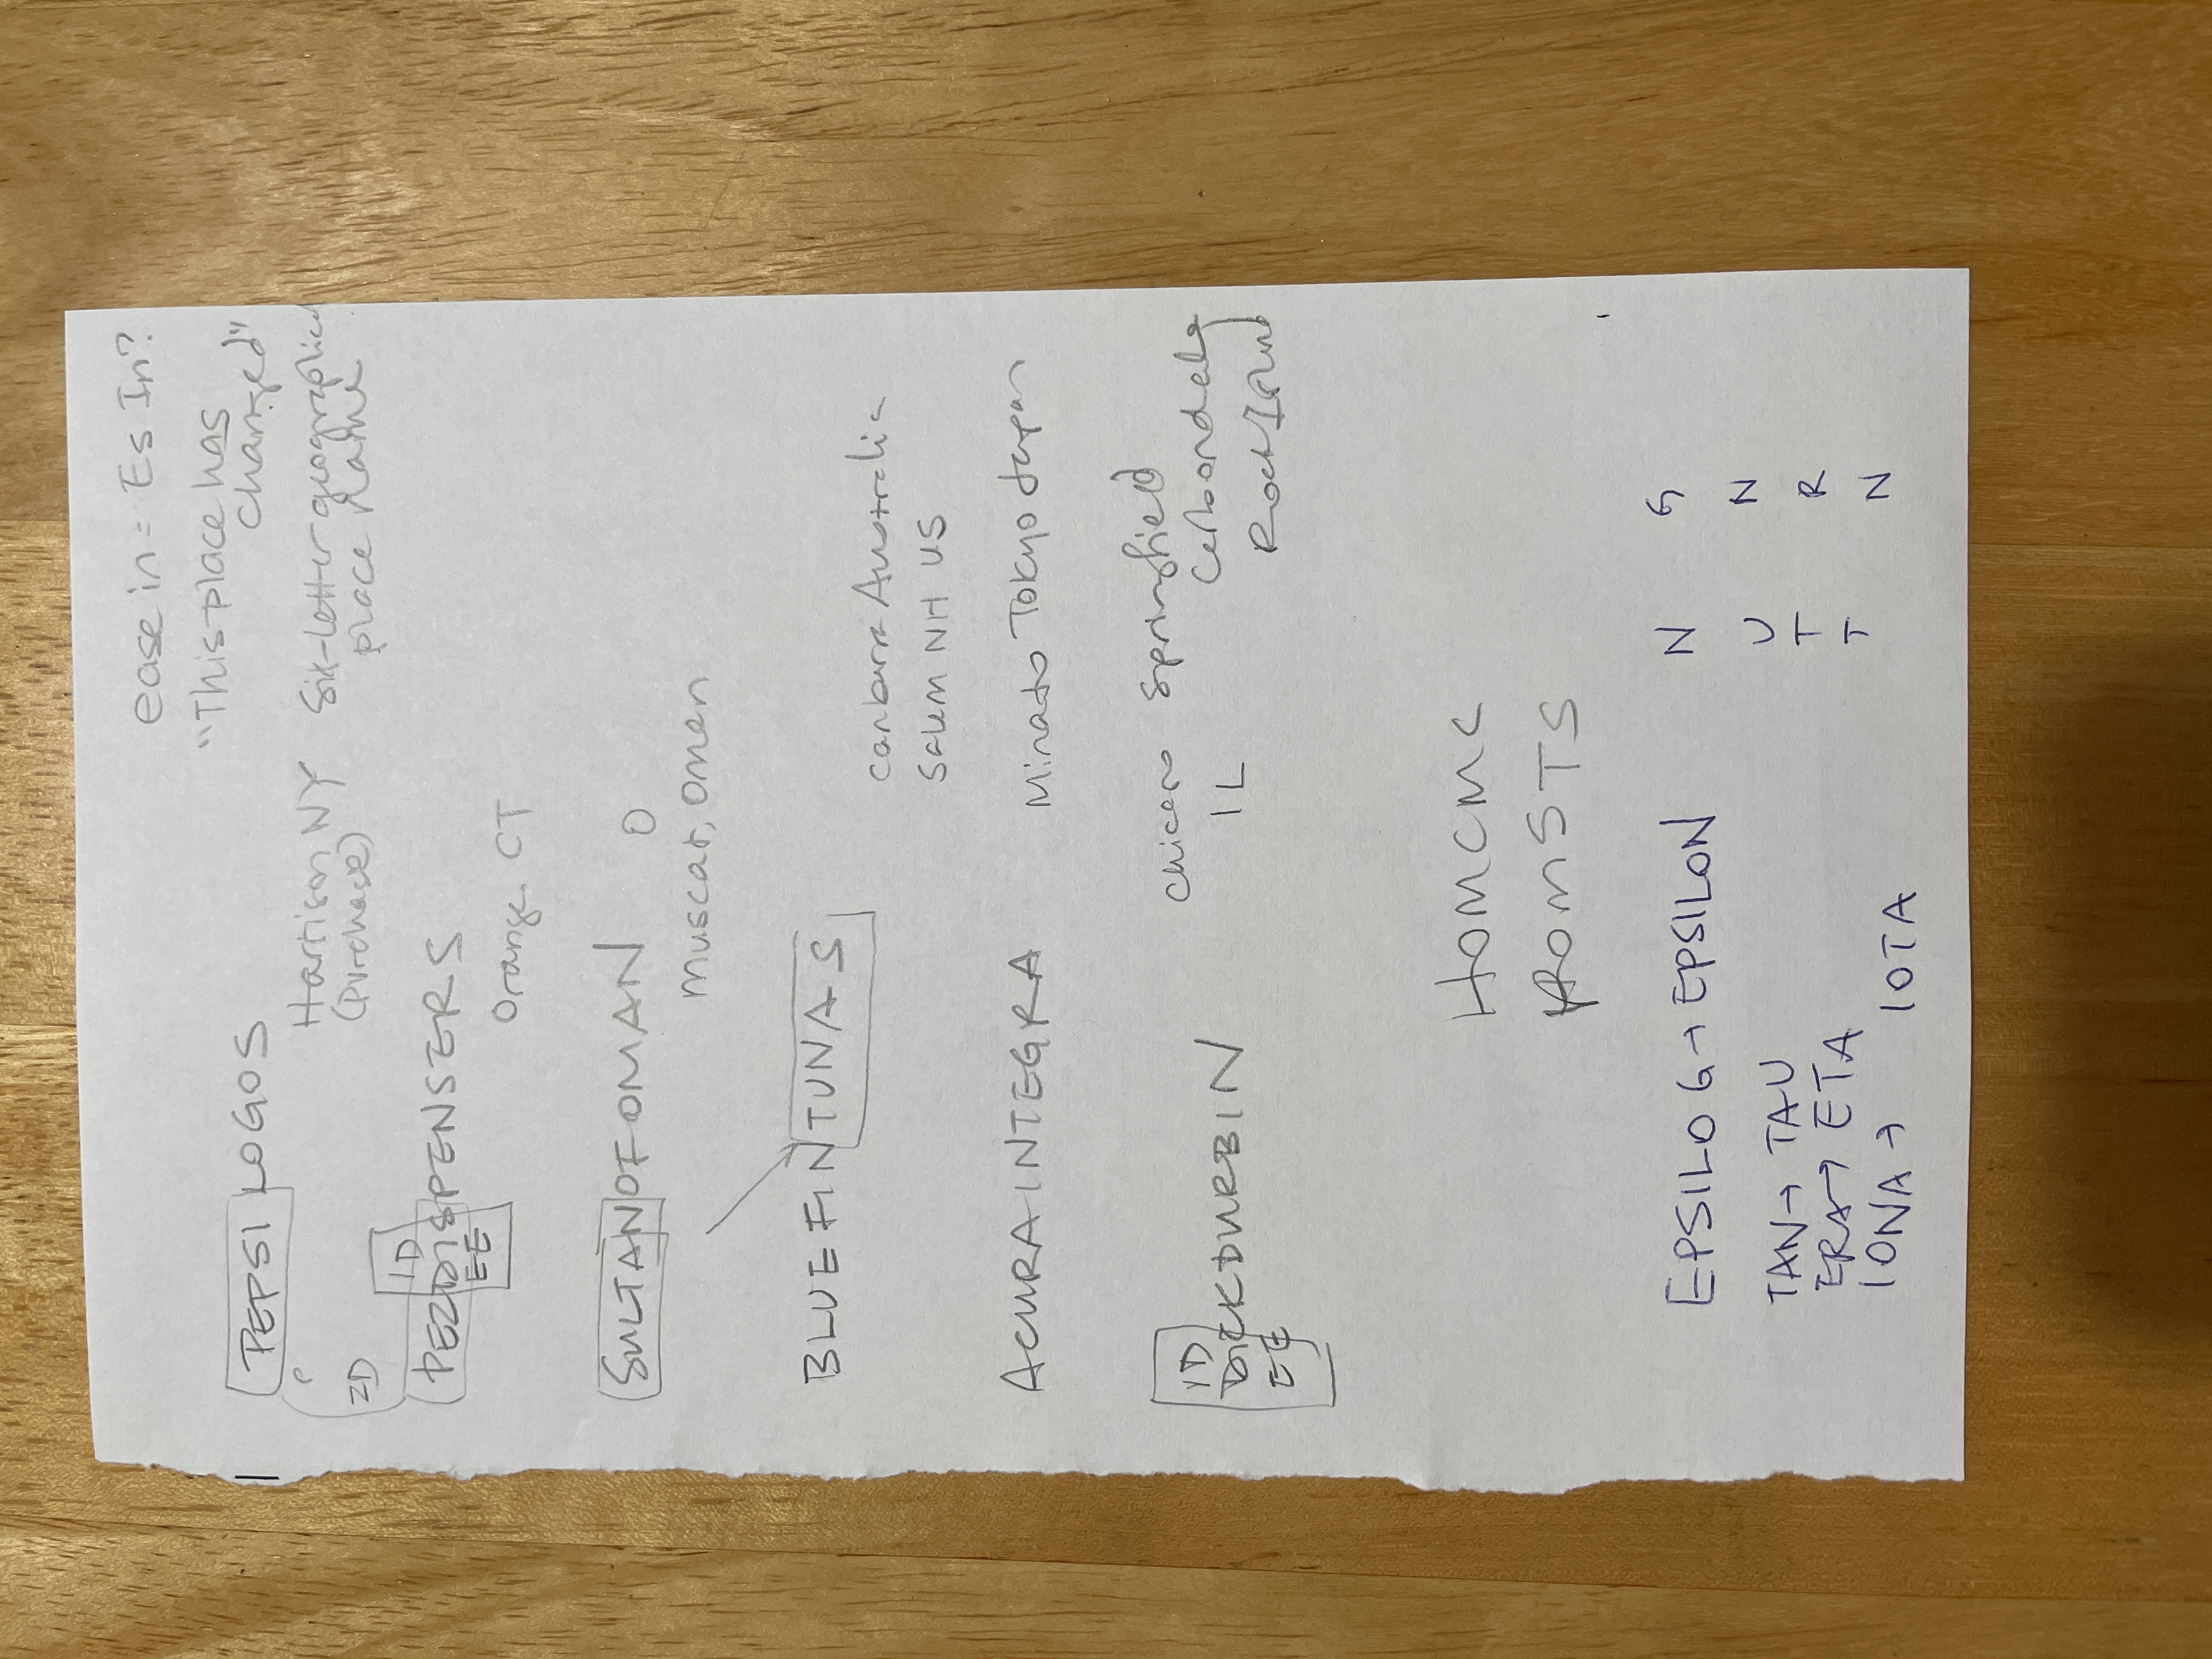 ease in = Es In?
"This place has
changed"
PEPSI LOGOS
P
Harrison NY
(Purchase)
Six-letter geographical
place name
ID
PEZDISPENSERS
EE
Orange, CT
SULTANOFOMAN O
Muscat, Oman
BLUEFINTUNAS
Canberra Australia
Salem NH US
ACURAINTEGRA
Minato Tokyo Japan
Chicago Springfield
ID
Carbondale
DICKDURBIN
IL
EE
Rock Island
HOMCMC
ROMSTS
EPSILOG → EPSILON N G
TAN → TAU U N
ERA → ETA T R
IONA → IOTA T N